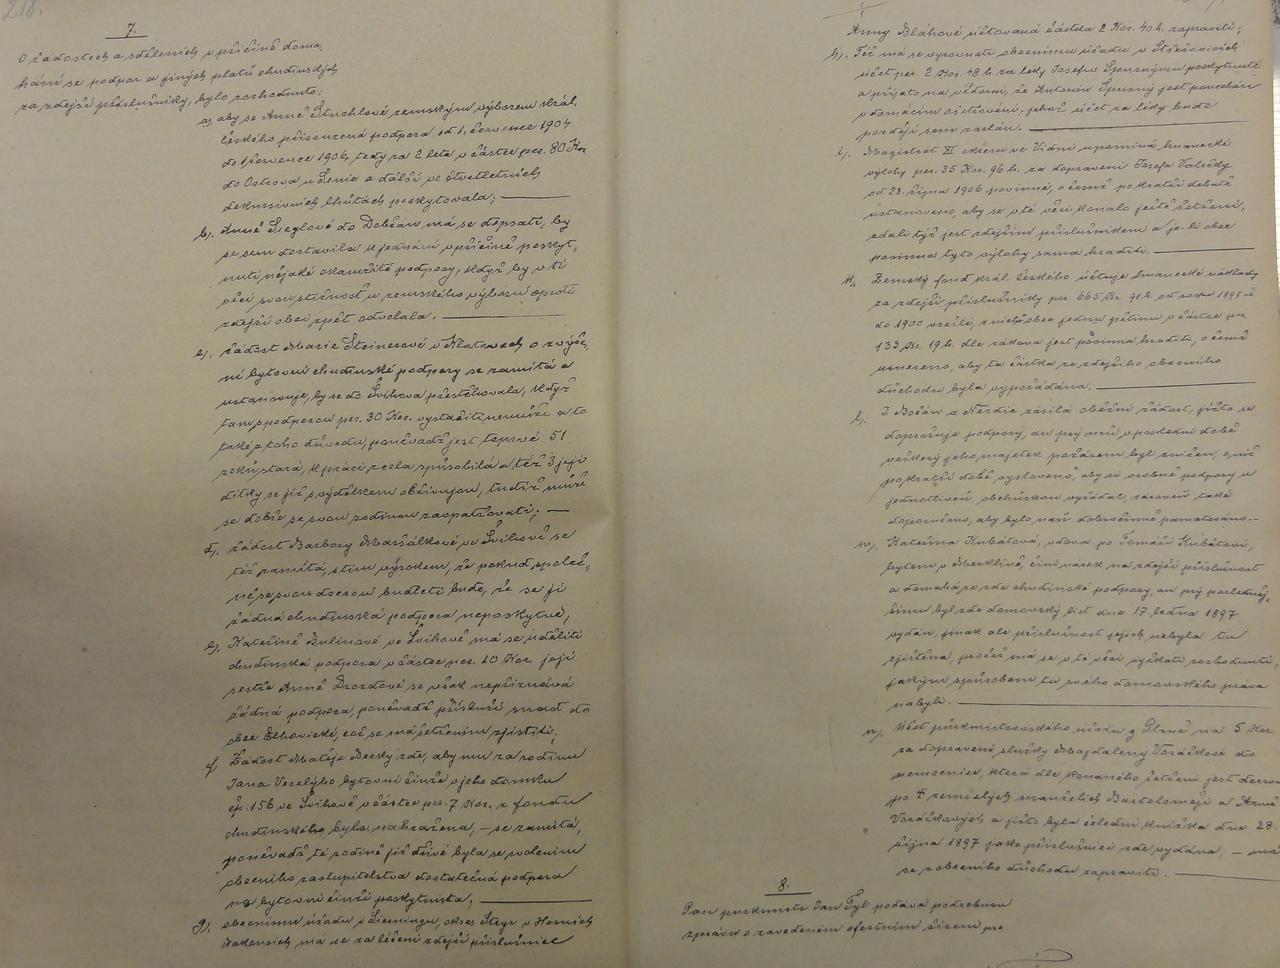 218.
7.
O žádostech a sděleních v příčině domá-
hání se podpor a jiných platů chudinských
za zdejší příslušníky, bylo rozhodnuto:
a), aby se Anně Stuchlové zemským výborem král.
českého přisouzená podpora od 1. července 1904
do 1 července 1906, tedy za 2 léta v částce per. 80 Kor
do Ostrova u Senic a další ve čtvrtletních
dekursivních lhůtách poskytovala; ———
b). Anně Zieglové do Dobřan má se dopsati, by
se sem dostavila k jednání v příčině poskyt-
nutí nějaké okamžité podpory, když by v té
věci svou stížnost u zemského výboru oproti
zdejší obci zpět odvolala. ———
c). žádost Marie Steinerové v Klatovech o zvýše-
ní bytovní chudinské podpory se zamítá a
ustanovuje, by se do Švihova přestěhovala, když
tam s podporou per. 30 Kor. vystačiti nemůže a to
také z toho důvodu, poněvadž jest teprve 51
roků stará, k práci zcela způsobilá a též 3 její
dítky se již s výdělkem obživujou, tudíž může
se dobře se svou rodinou zaopatřovati; —
d). žádost Barbory Maršálkové ve Švihově se
též zamítá, s tím výrokem, že pokud společ-
ně se svou dcerou bydleti bude, že se jí
žádná chudinská podpora neposkytne;
e), Kateřině Bulínové ve Švihově má se uděliti
chudinská podpora v částce per. 10 Kor její
sestře Anně Drozdové se však nepřiznává
žádná podpora, poněvadž přísluší snad do
obce Elhovické, což se má šetřením zjistiti;
f, Žádost Matěje Becky zde, aby mu za rodinu
Jana Veselýho bytovní činže v jeho domku
čp. 156 ve Švihově v částce per. 7 Kor. z fondu
chudinského byla nahražena, – se zamítá,
poněvadž té rodině již dříve byla se svolením
obecního zastupitelstva dostatečná podpora
na bytovní činži poskytnuta; ———
g). obecnímu úřadu v Sierningu, okres Steyr v Horních
Rakousích má se za léčení zdejší příslušnice
Anny Bláhové účtovaná částka 2 Kor. 40 h. zapraviti;
h). Též má se vyrovnati obecnímu úřadu v Střešovicích
účet per. 2 Kor. 48 h. za léky Josefu Spurnýmu poskytnuté
a přijato na vědomí, že Antonín Spurný jest ponechán
v domácím ošetřování, jehož účet za léky bude
později sem zaslán. ———
i). Magistrát XI okresu ve Vídni upomíná hnanecké
výlohy per. 35 Kor. 96 h. za dopravení Josefa Valečky
od 23. října 1906 povinné, o čemž po kratší debatě
ustanoveno, aby se v té věci konalo ještě šetření,
zdali týž jest zdejším příslušníkem a je-li obec
povinna tyto výlohy sama hraditi. ———
k, Zemský fond král. českého účtuje hnanecké náklady
za zdejší příslušníky per. 665 Kr. 91 h. od roku 1895 až
do 1900 vzešlé, z nichž obec jednu pětinu v částce per
133 Kr. 19 h. dle zákona jest povinna hraditi, o čemž
usneseno, aby ta částka ze zdejšího obecního
důchodu byla vypořádána; ———
l. J. Bočan z Nerdic zasílá oběžní žádost, jížto se
doprošuje podpory, an prý mu v poslední době
veškerý jeho majetek požárem byl zničen, o níž
po kratší době vysloveno, aby si osobně podpory u
jednotlivců obchůzkou vyžádal, zároveň také
doporučeno, aby bylo naň dobročinně pamatováno.–
m, Kateřina Kubátová, vdova po Tomáši Kubátovi,
bytem v Merklíně, činí nárok na zdejší příslušnost
a domáhá se zde chudinské podpory, an prý poslednej-
šímu byl zde domovský list dne 17. ledna 1897
vydán, jinak ale příslušnost jejich nebyla tu
zjištěna, pročež má se v té věci vyčkati rozhodnutí,
jakým způsobem tu svého domovského práva
nabyli. ———
n). Účet purkmistrovského úřadu z Plzně na 5 Kor.
za dopravení služky Magdaleny Voráčkové do
nemocnice, která dle konaného šetření jest dcerou
po † zemřelých manželích Bartoloměji a Anně
Voráčkových a jížto byla čelední knížka dne 28.
října 1897 jako příslušnici zde vydána, – má
se z obecního důchodu zapraviti. ———
8.
Pan purkmistr Jan Tyl podává podrobnou
zprávu o zavedeném ofertním řízení pro